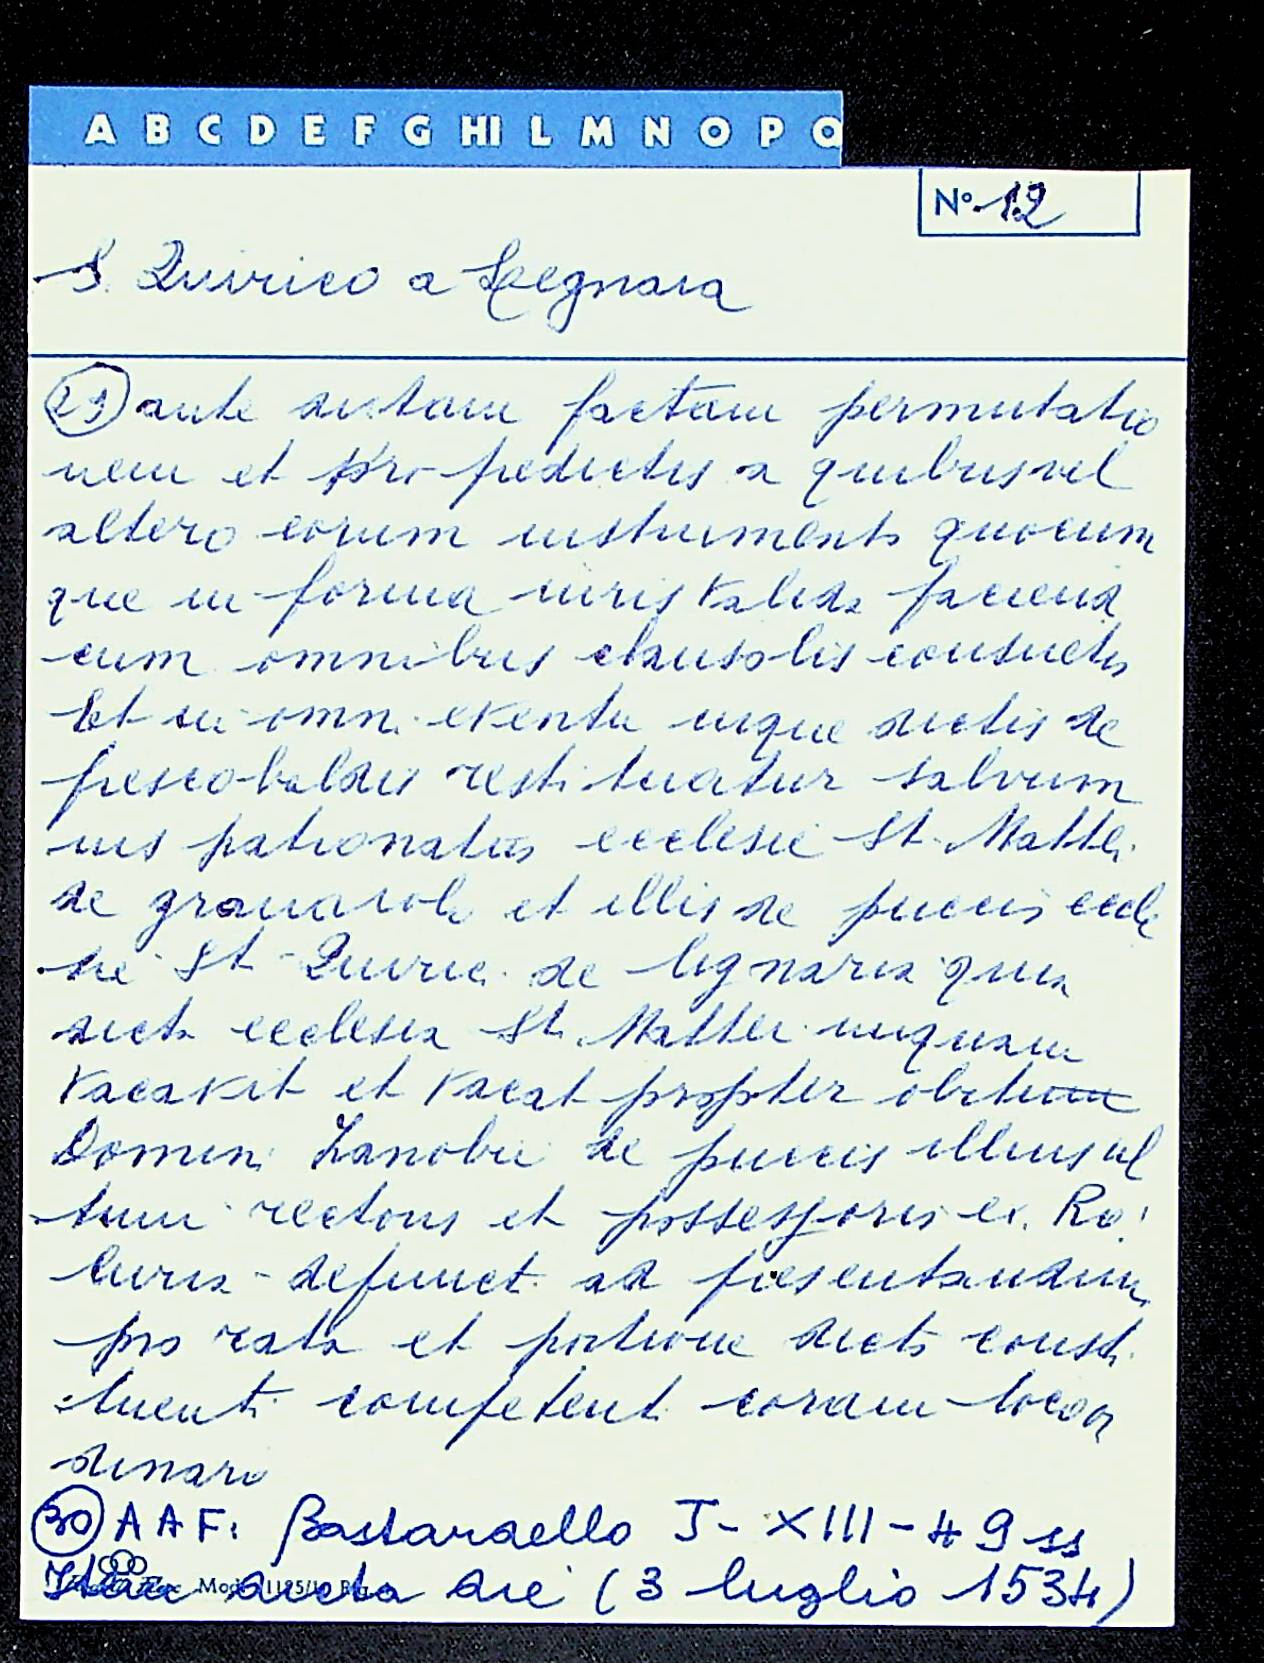 A B C D E F G HI L M N O P Q
N° 12
S. Quirico a Legnaia
29 ante dictam factam permutatio
nem et pro predictis a quibusvel
altero eorum instrumento quocum
que in forma iuris valida faciend
cum omnibus clausolis consuetis
Et in omni eventu usque dictis de
frescobaldis restituatur salvum
ius patronatus ecclesie St. Mattei
de granaiolo et illis de puccis eccle
sie St. Quirici de lignaria quia
dicta ecclesia St. Mattei nuquam
vacavit et vacat propter obitum
Domini Zanobii de puccis illius ul
timi rectoris et possessoris ex. Ro:
curia defunct. ad presentandum
pro rata et portione dicto consti
tuenti competent. coram loco or
dinario
30 A A F. Bastardello I - XIII - 49 ss
Item dicta die (3 luglio 1534)
Mod. 1125/L